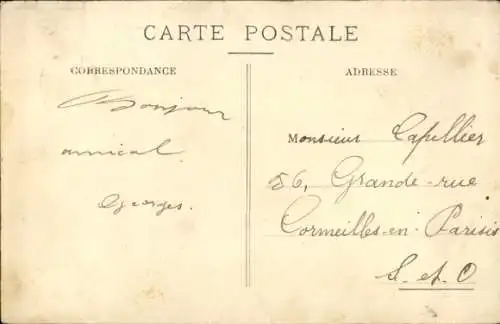 CARTE POSTALE
CORRESPONDANCE
Bonjour
amical.
Georges.
ADRESSE
Monsieur Capellier
56, Grande-rue
Cormeilles-en-Parisis
S. et O